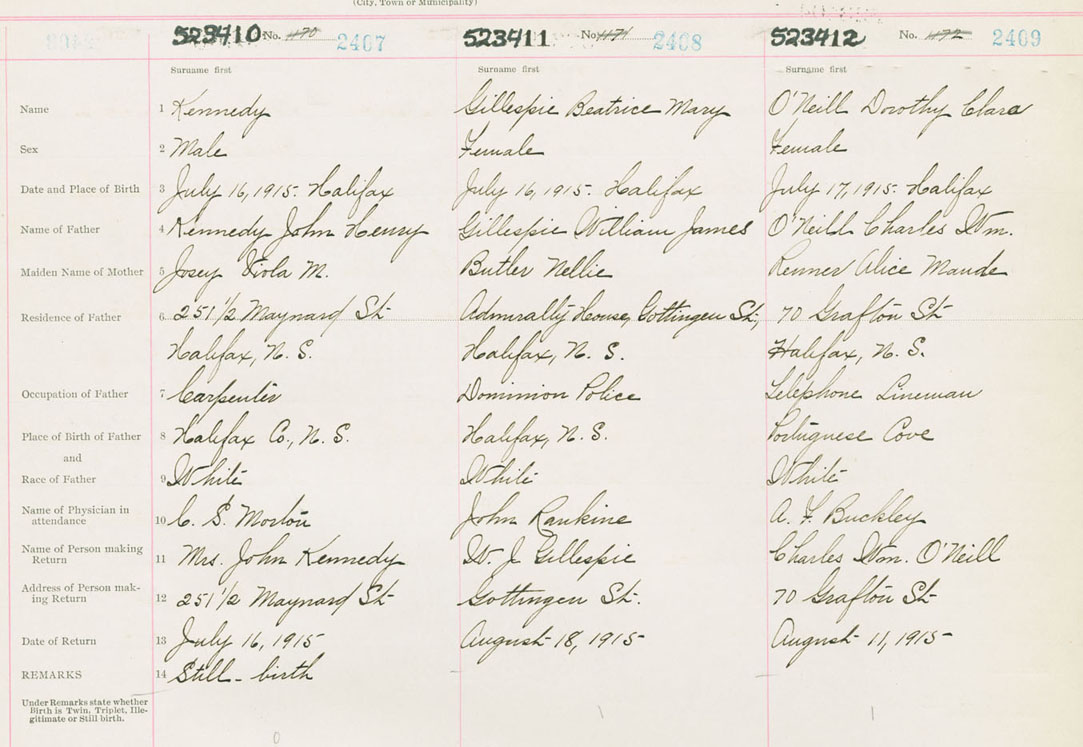 (City, Town or Municipality)
523410 No. 1170 2407 523411 No. 1171 2408 523412 No. 1172 2409
Surname first Surname first Surname first
Name 1 Kennedy Gillespie Beatrice Mary O'Neill Dorothy Clara
Sex 2 Male Female Female
Date and Place of Birth 3 July 16, 1915- Halifax July 16, 1915- Halifax July 17, 1915- Halifax
Name of Father 4 Kennedy John Henry Gillespie William James O'Neill Charles Wm.
Maiden Name of Mother 5 Josey Viola M. Butler Nellie Renner Alice Maude
Residence of Father 6 251 1/2 Maynard St. Admiralty House, Gottingen St., 70 Grafton St.
Halifax, N. S. Halifax, N. S. Halifax, N. S.
Occupation of Father 7 Carpenter Dominion Police Telephone Lineman
Place of Birth of Father 8 Halifax Co., N. S. Halifax, N. S. Portuguese Cove
and
Race of Father 9 White White White
Name of Physician in attendance 10 C. S. Morton John Rankine A. F. Buckley
Name of Person making Return 11 Mrs. John Kennedy W. J. Gillespie Charles Wm. O'Neill
Address of Person mak-
ing Return 12 251 1/2 Maynard St. Gottingen St. 70 Grafton St.
Date of Return 13 July 16, 1915- August 18, 1915- August 11, 1915-
REMARKS 14 Still-birth
Under Remarks state whether
Birth is Twin, Triplet, Ille-
gitimate or Still birth.